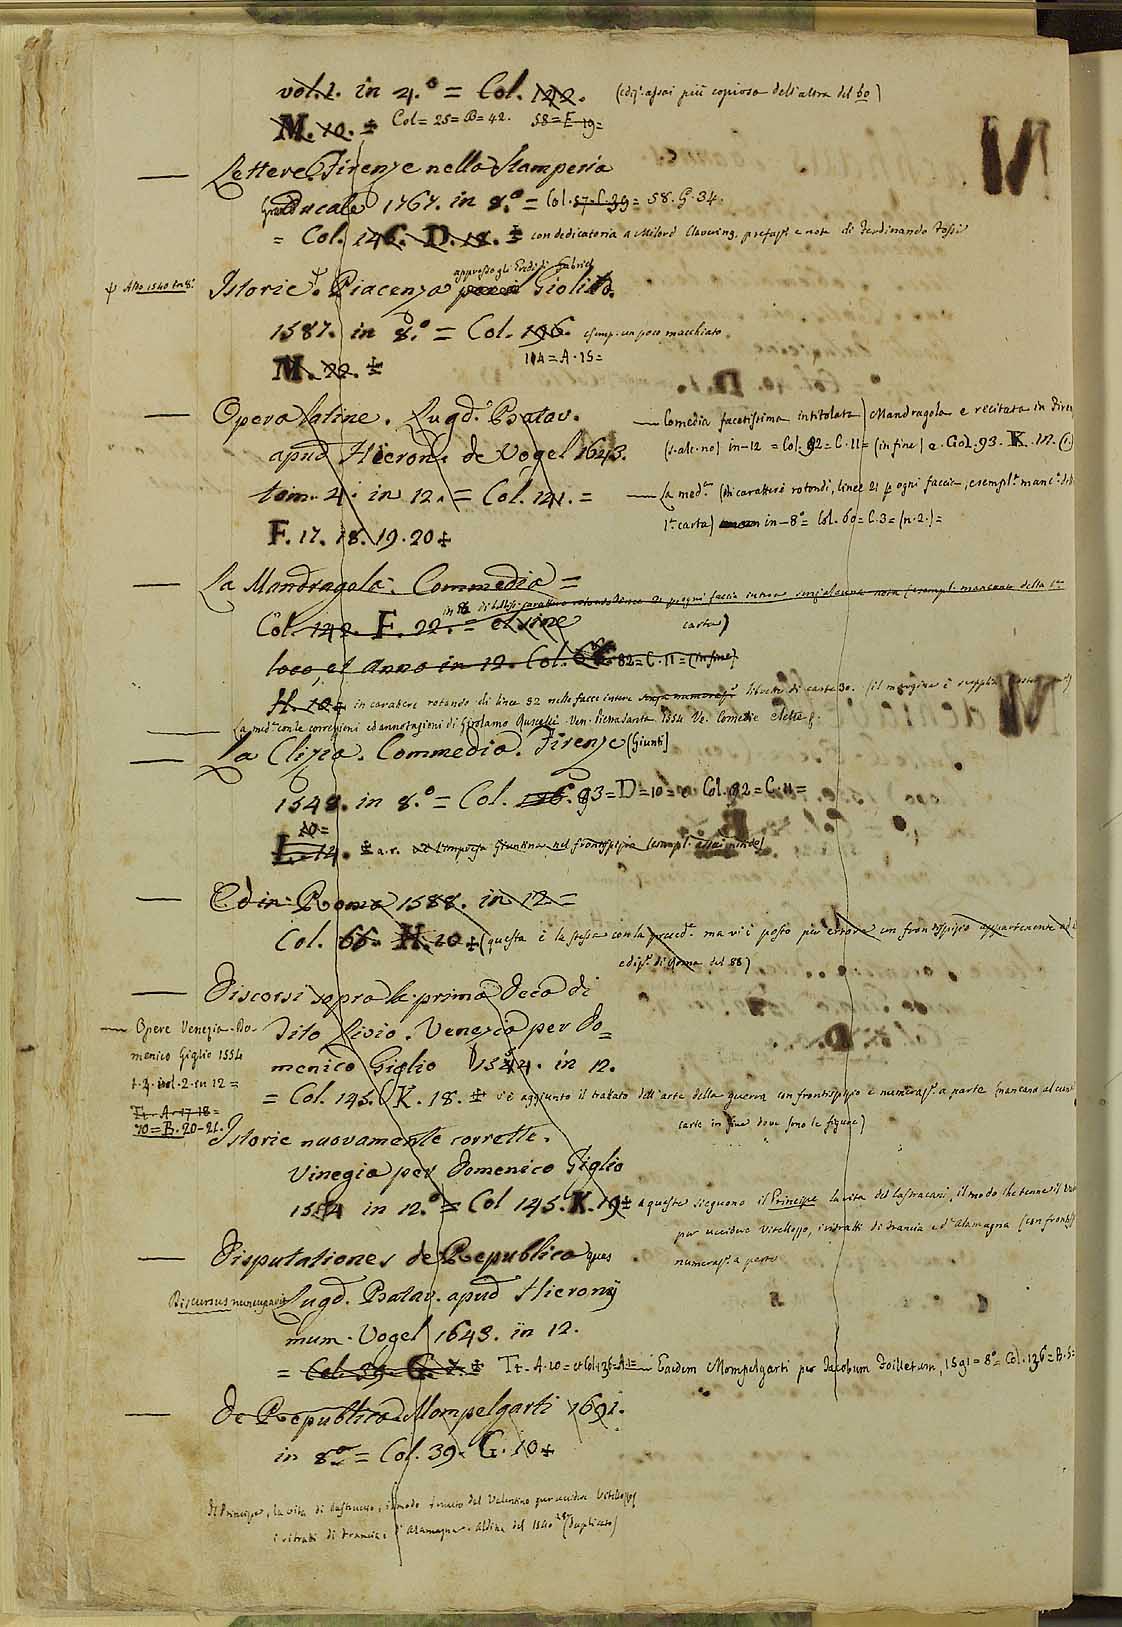 vol. 2. in 4.º = Col. 142. (ediz. assai più copiosa dell'altra del 60)
M. 10. ± Col = 25 = B = 42. 58 = E 19 =
— Lettere. Firenze nella Stamperia
Gran Ducale 1767. in 8.º = Col. 57. C. 39 = 58. G. 34.
= Col. 146. D. 18. ± con dedicatoria a Milord Clavering, prefaz.e e note di Ferdinando Fossi
Aldo 1540 in 8.º
Istorie. Piacenza appresso gli Eredi di Gabriel Giolito.
1587. in 8.º = Col. 106. esemp. un poco macchiato
M. 22. ± 114 = A. 15 =
— Opera latine. Lugd. Batav.
apud Hieron. de Vogel 1643.
tom. 4. in 12. = Col. 141. =
F. 17. 18. 19. 20 ±
— Comedia facetissima intitolata Mandragola e recitata in Firen
(s. alc. no) in-12 = Col. 92 = C. 11 = (in fine) e Col. 93. K. in.
— La med.ma (di carattere rotondi, linee 21 p ogni faccia, esempl.e manc.e del
1.ª carta) in-8º = Col. 60 = C. 3 = (n. 2.) =
— La Mandragola. Commedia =
Col. 142. F. 22. = et sine
carta)
loco, et anno in 12. Col. 66. 82 = C. 11 = (in fine)
H. 10 ± in carattere rotondo di linee 32 nelle facce intere libretto di carte 30. (il margine è
— La med.ª con le correzioni ed annotazioni di Girolamo Ruscelli Ven. Pietrasanta 1554 Ve. Comedie elette
— La Clizia. Commedia. Firenze (Giunti)
1548. in 8.º = Col. 93 = D = 10 = e Col. 92 = C. 11 =
10 =
± a. r. ed impresa Giuntina nel frontispizio (esempl. assai nitido)
— Ed in Roma 1588. in 12 =
Col. 66. H. 10 ± (questa è la stessa con la preced.e ma vi è posto per errore un frontispizio appartenente ad
ediz.e di Roma del 88)
— Discorsi sopra la prima Deca di
Tito Livio. Venezia per Do=
menico Giglio 1554. in 12.
= Col. 145. K. 18. ± v'è aggiunto il trattato dell'arte della guerra con frontispizio e numeraz.e a parte (mancano alcune
carte in fine dove sono le figure)
— Opere Venezia. Do.
menico Giglio 1554
t. 2. vol. 2. in 12 =
Tt. A. 17. 18 =
70 = B. 20-21.
Istorie nuovamente corrette.
Vinegia per Domenico Giglio
1554 in 12.º = Col 145. K. 19 ± a queste sieguono il Principe la vita del Castracani, il modo che tenne il
per uccidere Vitellozzo, i ritratti di Francia e d'Alamagna (con frontis.
numeraz.e a parte
— Disputationes de Republica quas
Discursus nuncupavit Lugd. Batav. apud Hierony
mum. Vogel 1643. in 12.
= Col. 39. G. 7. ± Tt. A. 10 = e Col. 136 = A. 1 = — Eaedem Mompelgarti per Jacobum Foilletum, 1591 = 8º = Col. 136 = B. 5 =
— De Republica Mompelgarti 1691.
in 8.º = Col. 39. G. 10 ±
Il Principe, la vita di Castruccio, il modo tenuto dal Valentino per uccidere Vitellozzo,
i ritratti di Francia e d'Alamagna. Aldina del 1540 in 8º (duplicato)